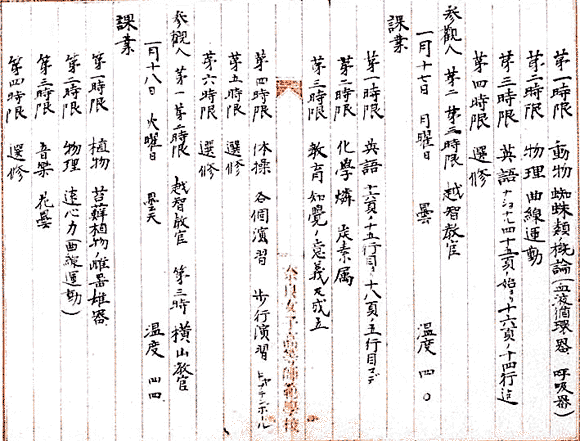 第一時限 動物 蜘蛛類概論(血液循環器 呼吸器)
第二時限 物理 曲線運動
第三時限 英語 十五頁ノ始ヨリ十六頁ノ十四行迄
第四時限 選修
参観人 第二 第三時限 越智教官
一月十七日 月曜日 曇 温度 四〇
課業
第一時限 英語 十六頁ノ十五行目ヨリ十八頁ノ五行目マデ
第二時限 化學 燐 炭素属
第三時限 教育 知覺ノ意義及成立
奈良女子高等師範學校
第四時限 体操 各個演習 歩行演習
第五時限 選修
第六時限 選修
参観人 第一 第二時限 越智教官 第三時 横山教官
一月十八日 火曜日 曇天 温度 四四
課業
第一時限 植物 苔蘚植物ノ雌器雄器
第二時限 物理 遠心力(曲線運動)
第三時限 音楽
第四時限 選修